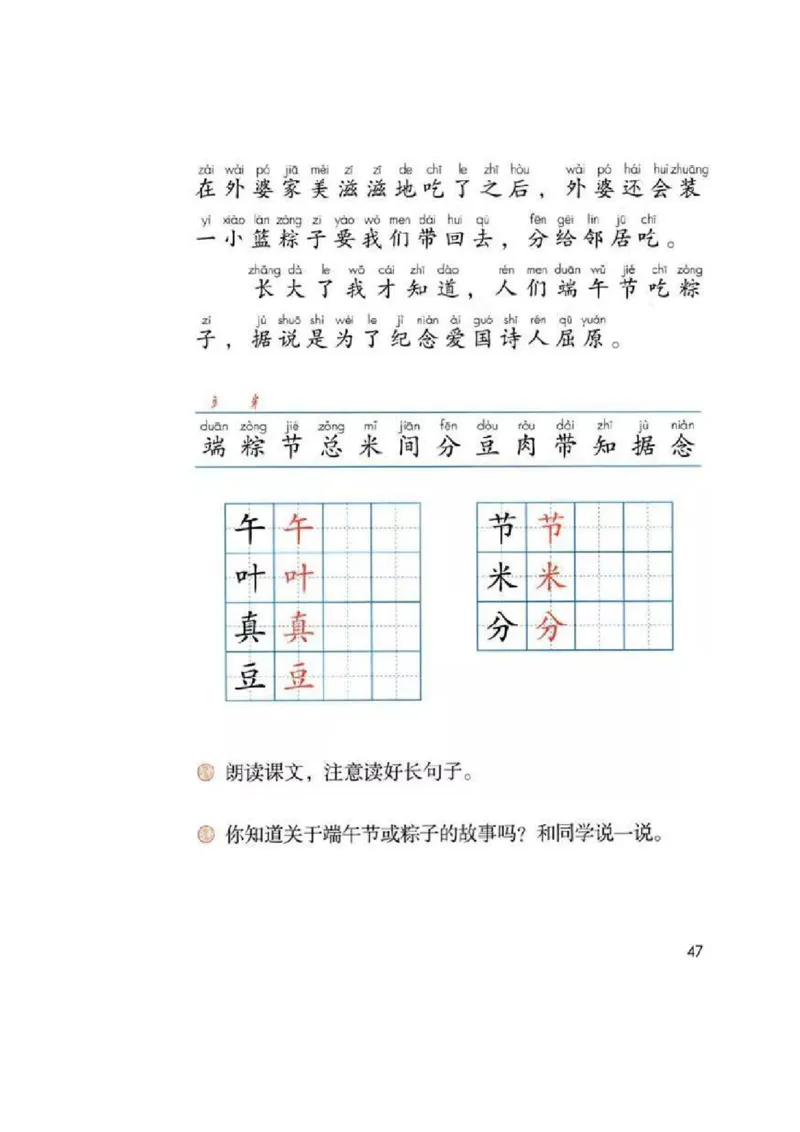 zài wài pó jiā měi zī zī de chī le zhī hòu wài pó hái huì zhuāng
在外婆家美滋滋地吃了之后，外婆还会装
yì xiǎo lán zòng zi yào wǒ men dài huí qù fēn gěi lín jū chī
一小篮粽子要我们带回去，分给邻居吃。
zhǎng dà le wǒ cái zhī dào rén men duān wǔ jié chī zòng
长大了我才知道，人们端午节吃粽
zi jù shuō shì wèi le jì niàn ài guó shī rén qū yuán
子，据说是为了纪念爱国诗人屈原。
duān zòng jié zǒng mǐ jiān fēn dòu ròu dài zhī jù niàn
端 粽 节 总 米 间 分 豆 肉 带 知 据 念
午 午 节 节
叶 叶 米 米
真 真 分 分
豆 豆
朗读课文，注意读好长句子。
你知道关于端午节或粽子的故事吗？和同学说一说。
47